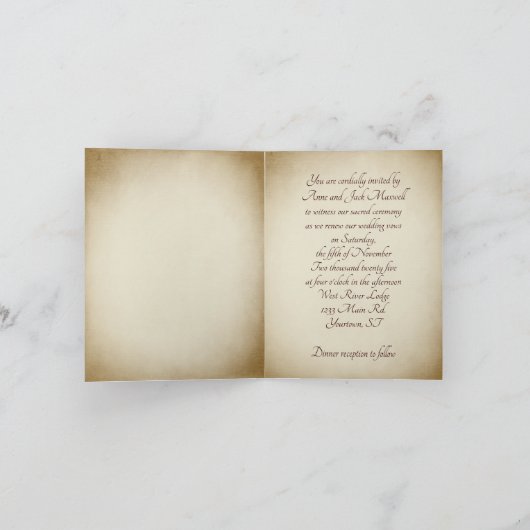 You are cordially invited by
Anne and Jack Maxwell
to witness our sacred ceremony
as we renew our wedding vows
on Saturday,
the fifth of November
Two thousand twenty five
at four o'clock in the afternoon
West River Lodge
1233 Main Rd.
Yourtown, ST
Dinner reception to follow